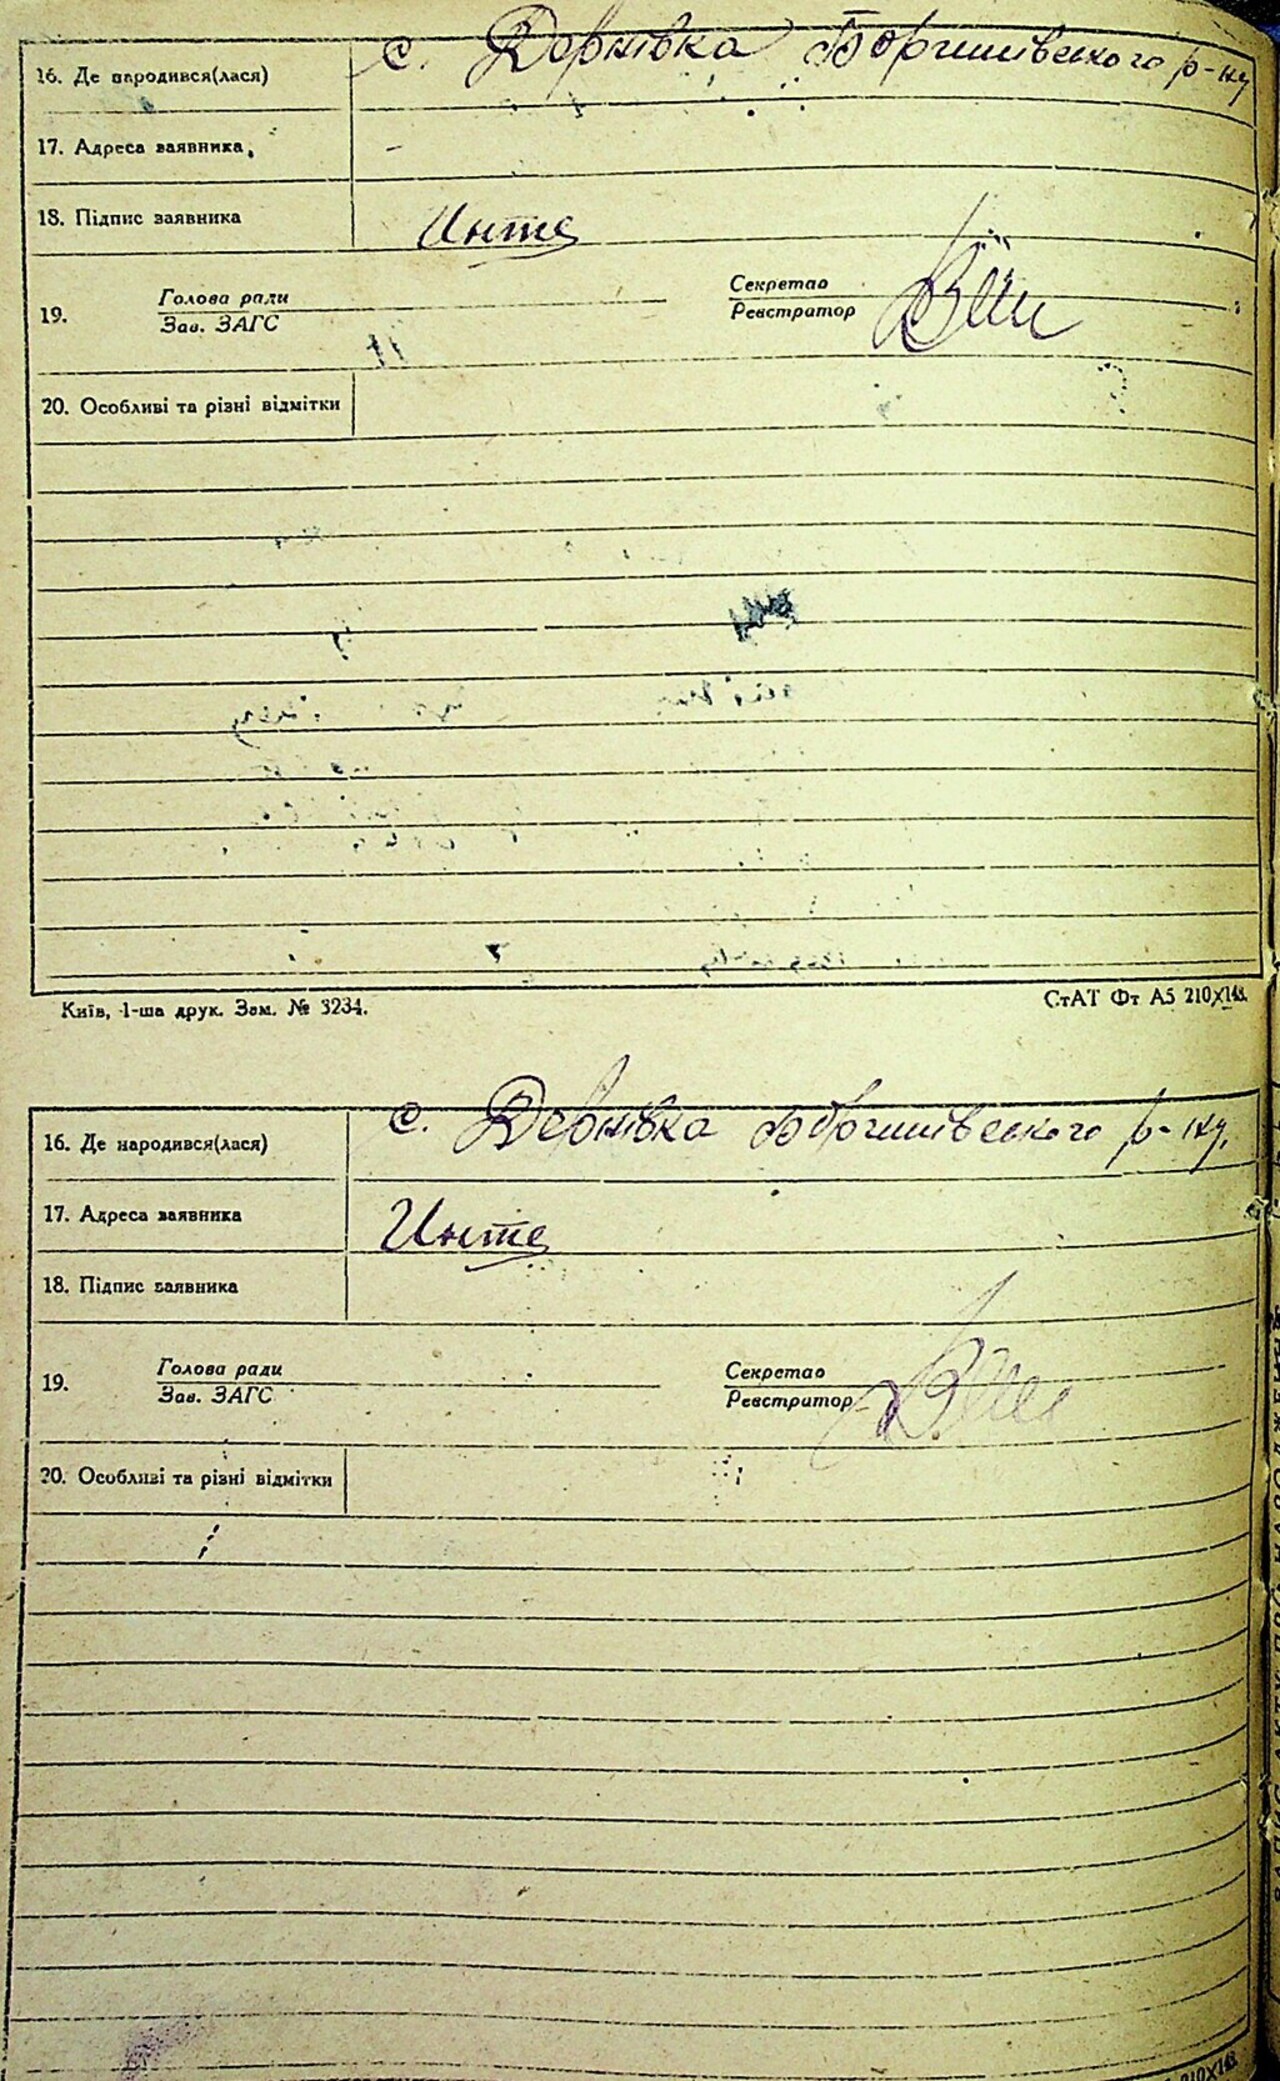 с. Дернівка Боришівського р-ну
16. Де народився(лася)
17. Адреса заявника
-
18. Підпис заявника
Инте
19.
Голова ради
Зав. ЗАГС
Секретар
Реєстратор
20. Особливі та різні відмітки
Київ, 1-ша друк. Зам. № 3234.
СтАТ Фт А5 210X148.
с. Дернівка Боришівського р-ну.
16. Де народився(лася)
17. Адреса заявника
Инте
18. Підпис заявника
19.
Голова ради
Зав. ЗАГС
Секретар
Реєстратор
20. Особливі та різні відмітки
210X148